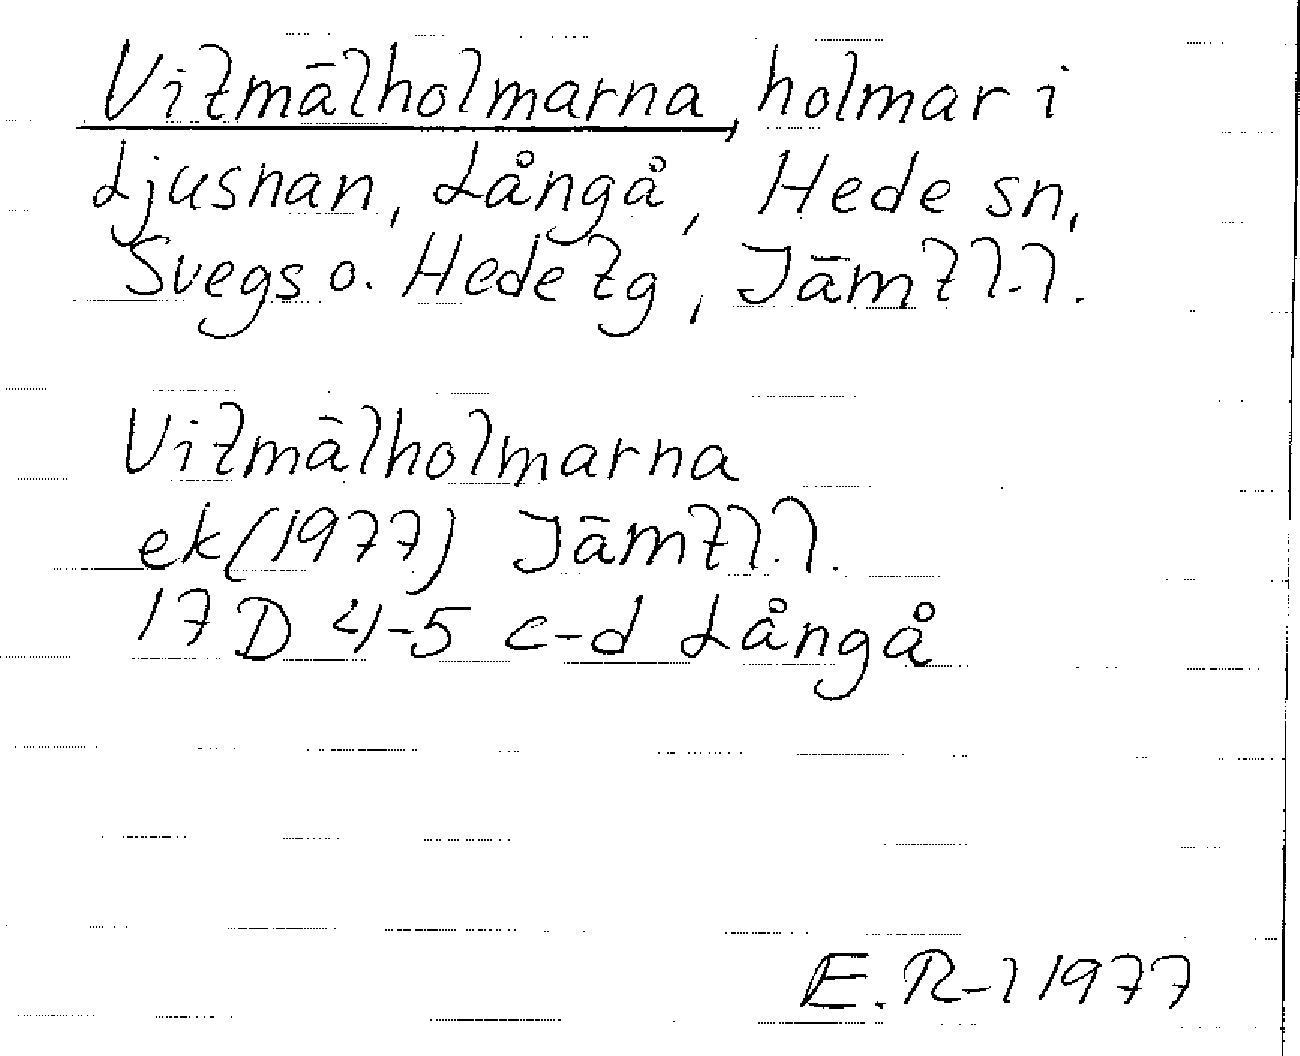 Vitmälholmarna, holmar i
Ljusnan, Långå, Hede sn,
Svegs o. Hede tg, Jämtl.l.
Vitmälholmarna
ek(1977) Jämtl.l.
17 D 4-5 c-d Långå
E.R-l 1977